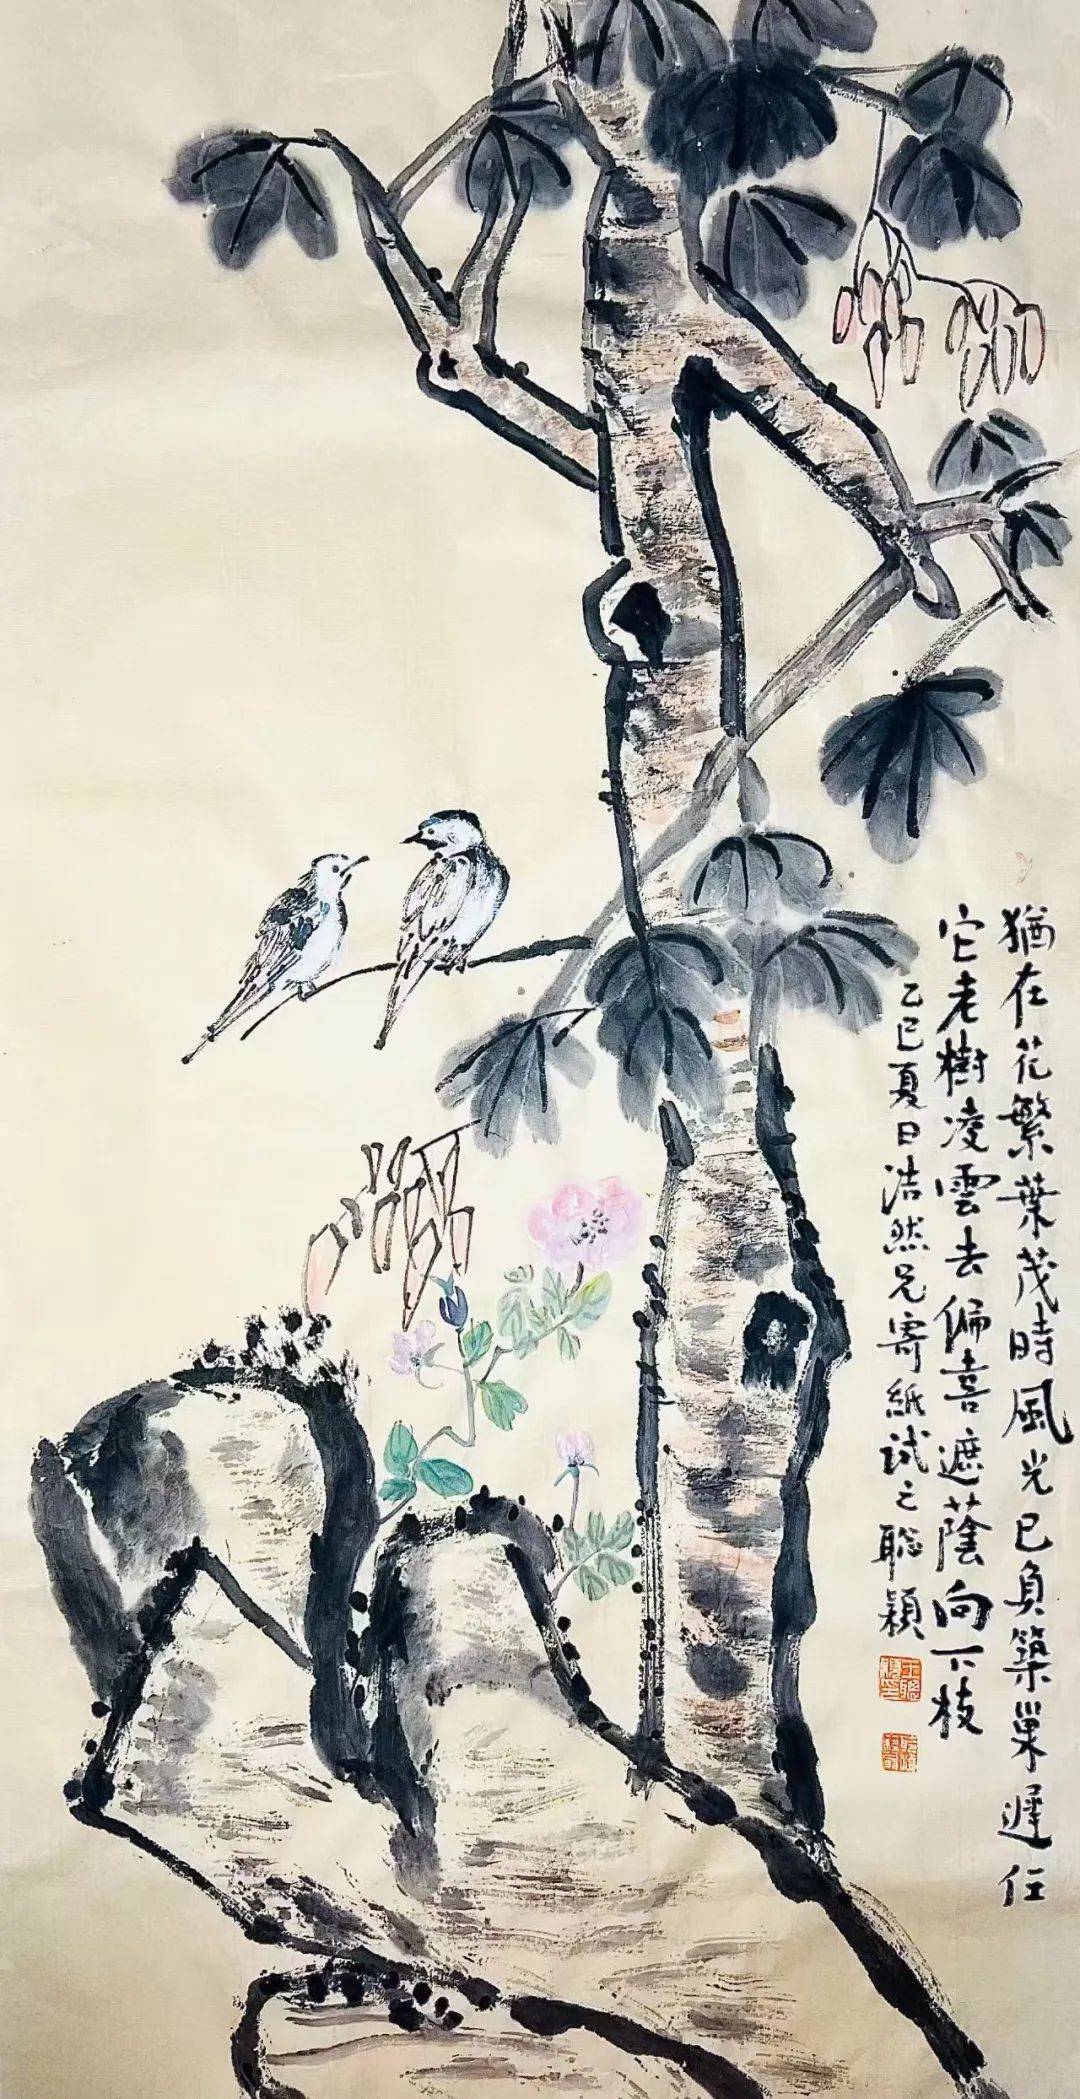 猶在花繁葉茂時風光已負築巢遲任
它老樹凌雲去偏喜遮蔭向下枝
乙巳夏日浩然兄寄紙試之聪穎